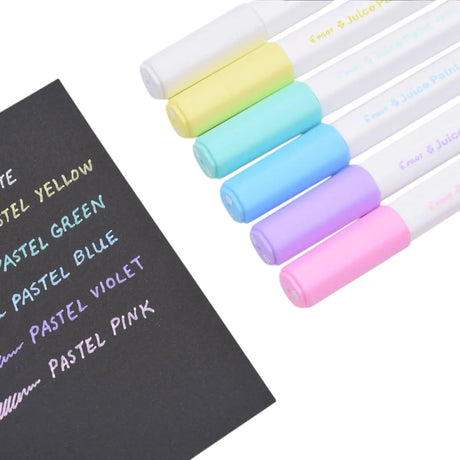 PILOT Juice Paint
PILOT Juice Paint
PILOT Juice Paint
PILOT Juice
YELLOW
PASTEL GREEN
PASTEL BLUE
PASTEL VIOLET
PASTEL PINK